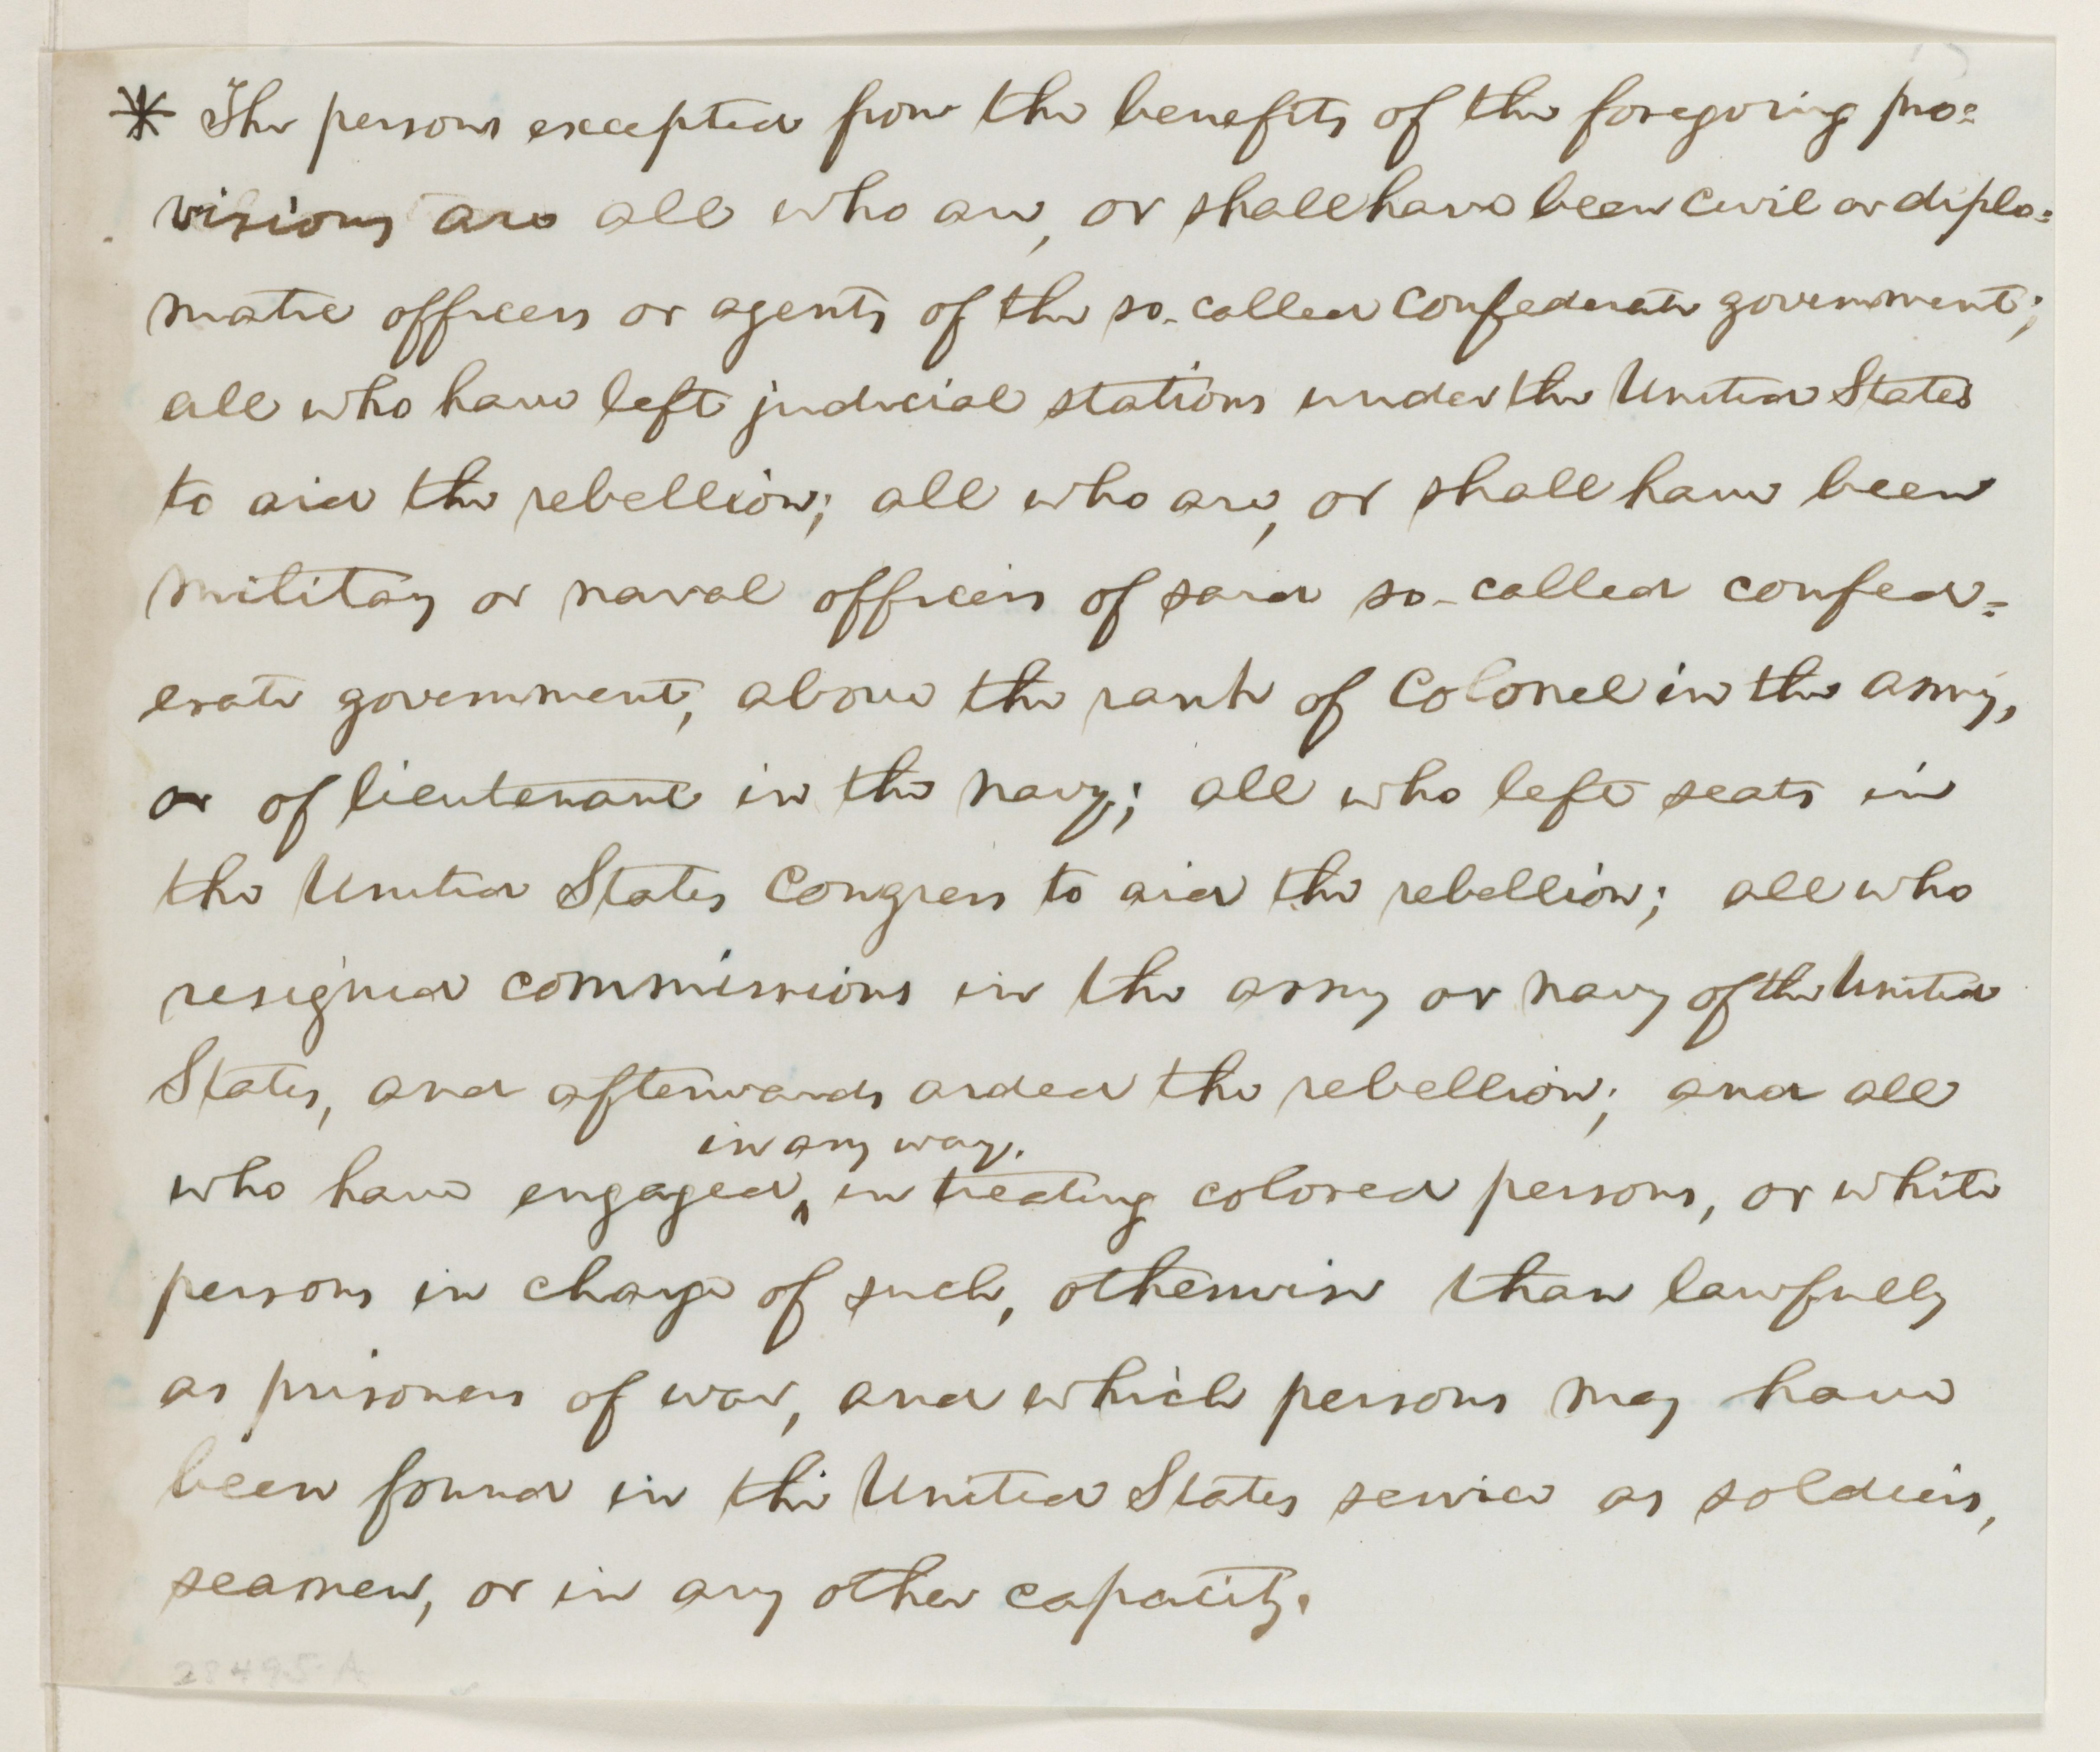 * The persons excepted from the benefits of the foregoing pro=
visions are all who are, or shall have been civil or diplo=
matic officers or agents of the so-called confederate government;
all who have left judicial stations under the United States
to aid the rebellion; all who are, or shall have been
military or naval officers of said so-called confed=
erate government, above the rank of colonel in the army,
or of lieutenant in the navy; all who left seats in
the United States Congress to aid the rebellion; all who
resigned commissions in the army or navy of the United
States, and afterwards aided the rebellion; and all
in any way.
who have engaged, in treating colored persons, or white
persons in charge of such, otherwise than lawfully
as prisoners of war, and which persons may have
been found in the United States service as soldiers,
seamen, or in any other capacity.
28495 A